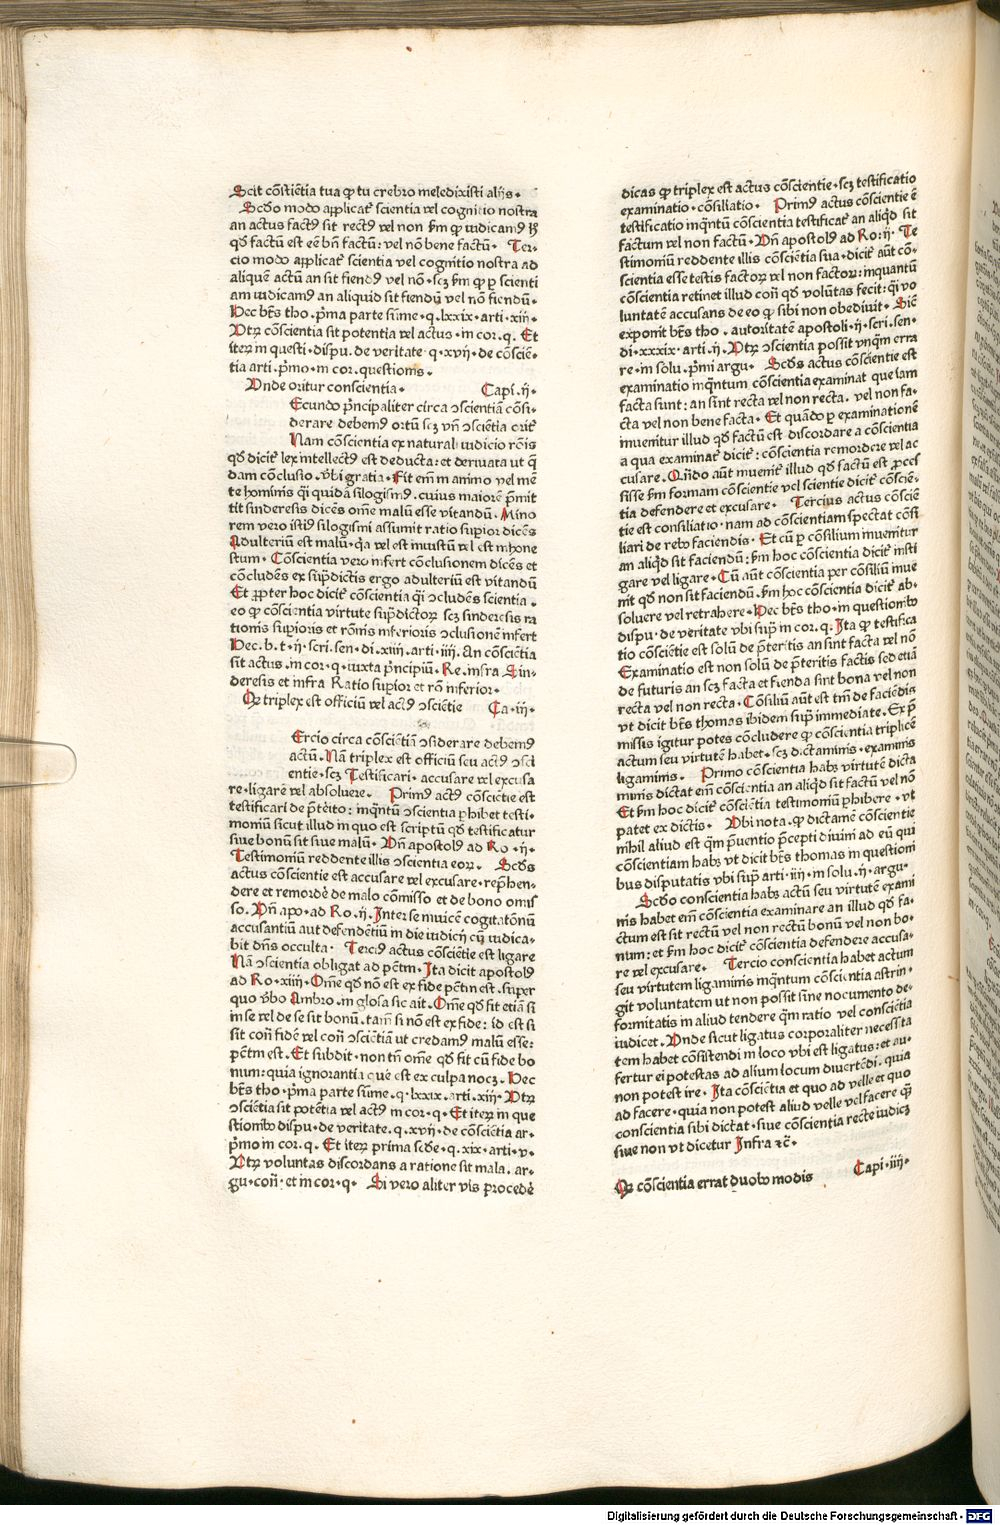 Scit cõstiẽtia tua ꝙ tu crebro meledixisti alijs.
Scd̃o modo applicat᷑ scientia vel cognicio nostra
an actus factꝰ sit rectꝰ vel non ẜm ꝙ iudicamꝰ
qd̃ factũ est eẽ bñ factũ: vel nõ bene factũ. Ter-
cio modo applicat᷑ scientia vel cognitio nostra ad
aliquẽ actũ an sit fiendꝰ vel nõ. scꝫ ẜm ꝙ ꝑ scienti
am iudicamꝰ an aliquid sit fiendũ vel nõ fiendũ.
Hec bt̃s tho. p̃ma parte sũme. q. lxxix. arti. xiij.
Vtꝝ cõscientia sit potentia vel actus. in cor. q. Et
iteꝝ in questi. dispu. de veritate. q. xvij. de cõsciẽ-
tia arti. p̃mo. in cor. questionis.
Vnde oritur conscientia. Capi. ij.
Ecundo p̃ncipaliter circa ɔscientiã cõsi-
derare debemꝰ ortũ scꝫ vñ ɔsciẽtia orit᷑
Nam cõscientia ex naturali iudicio rõis
qd̃ dicit᷑ lex intellectꝰ est deducta: et deriuata ut q̃
dam cõclusio. v̾bi gratia. Fit em̃ in animo vel mẽ
te hominis q̃i quidã silogismꝰ. cuius maiorẽ p̃mit
tit sinderesis dicẽs om̃e malũ esse vitandũ. Mino
rem vero istiꝰ silogismi assumit ratio supior dicẽs
Adulteriũ est malũ. q̃a vel est iniustũ vel est inhone
stum. Conscientia vero infert cõclusionem dicẽs et
concludẽs ex sup̃dictis ergo adulteriũ est vitandũ
Et ꝓpter hoc dicit᷑ cõscientia q̃i ɔcludẽs scientia.
eo ꝙ conscientia virtute sup̃dictoꝝ scꝫ sinderesis ra
tionis supioris et rõnis inferioris ɔclusionẽ infert
Hec. b. t. ij. scri. sen. di. xiiij. arti. iiij. An cõsciẽtia
sit actus. in cor. q. iuxta p̃ncipiũ. Re. infra Sin-
deresis et infra Ratio supior et rõ inferior.
Qꝫ triplex est officiũ vel actꝰ ɔsciẽtie Ca. iij.
Ercio circa cõscientiã ɔsiderare debemꝰ
actũ. Nã triplex est officiũ seu actꝰ ɔsci
entie. scꝫ Testificari. accusare vel excusa
re. ligare vel absoluere. Primꝰ actꝰ cõsciẽtie est
testificari de p̃teito: inq̃ntũ ɔscientia ꝑhibet testi-
moniũ sicut illud in quo est scriptũ qd̃ testificatur
siue bonũ sit siue malũ. Vñ apostolꝰ ad Ro. ij.
Testimoniũ reddente illis ɔscientia eoꝝ. Scd̃s
actus cõscientie est accusare vel excusare. rep̃hen-
dere et remordẽ de malo cõmisso et de bono omis
so. Vñ apo. ad Ro. ij. Inter se inuicẽ cogitatõnũ
accusantiũ aut defendẽtiũ in die iudicij cũ iudica-
bit dñs occulta. Terciꝰ actus cõsciẽtie est ligare
Nã ɔscientia obligat ad pctm̃. Ita dicit apostolꝰ
ad Ro. xiiij. Om̃e qd̃ nõ est ex fide pctm̃ est. super
quo v̾bo Ambro. in glosa sic ait. Om̃e qd̃ fit etiã si
in se vel de se sit bonũ. tam̃ si nõ est ex fide: id est si
sit cont᷑ fidẽ vel cont᷑ ɔsciẽtiã ut credamꝰ malũ esse:
pctm̃ est. Et subdit. non tñ om̃e qd̃ fit cũ fide bo
num: quia ignorantia que est ex culpa nocꝫ. Hec
bt̃s tho. p̃ma parte sũme. q. lxxix. arti. xiij. Vtꝝ
ɔsciẽtia sit potẽtia vel actꝰ in cor. q. Et iteꝝ in que
stionibꝰ dispu. de veritate. q. xvij. de cõsciẽtia ar.
p̃mo in cor. q. Et iteꝝ prima scd̃e. q. xix. arti. v.
Vtꝝ voluntas discordans a ratione sit mala. ar.
gu. cont᷑. et in cor. q. Si vero aliter vis procedẽ
dicas ꝙ triplex est actus cõscientie. scꝫ testificatio
examinatio. cõsiliatio. Primꝰ actus cõscientie ẽ
testificatio inq̃ntũ cõscientia testificat᷑ an aliqd̃ sit
factum vel non factũ. Vñ apostolꝰ ad Ro. ij. Te
stimoniũ reddente illis cõsciẽtia sua. dicit᷑ aut cõ-
scientia esse testis factoꝝ vel non factoꝝ: inquantũ
cõscientia retinet illud cont᷑ qd̃ volũtas fecit: q̃i vo
luntatẽ accusans de eo ꝙ sibi non obediuit. Sic̃
exponit bt̃s tho. autoritatẽ apostoli. ij. scri. sen.
di. xxxix. arti. ij. Vtꝝ ɔscientia possit vnq̃m erra
re. in solu. p̃mi argu. Scd̃s actus cõscientie est
examinatio inq̃ntum cõscientia examinat que iam
facta sunt: an sint recta vel non recta. vel non fa-
cta vel non bene facta. Et quãdo ꝑ examinationẽ
inuenitur illud qd̃ factũ est discordare a cõscientia
a qua examinat᷑ dicit᷑: cõscientia remordere vel ac
cusare. Qñdo aũt inuenit᷑ illud qd̃ factũ est ꝓces
sisse ẜm formam cõscientie vel scientie dicit᷑ cõscien-
tia defendere et excusare. Tercius actus cõsciẽ
tie est consiliatio. nam ad cõscientiam spectat cõsi
liari de rebꝰ faciendis. Et cũ ꝑ consilium inuenitur
an aliqd̃ sit faciendũ: ẜm hoc cõscientia dicit᷑ insti
gare vel ligare. Cũ aũt cõscientia per cõsiliũ inue
nit qd̃ non sit faciendũ. ẜm hoc cõscientia dicit᷑ ab-
soluere vel retrahere. Hec bt̃s tho. in questionibꝰ
dispu. de veritate vbi sup̃ in cor. q. Ita ꝙ testifica
tio cõsciẽtie est solũ de p̃teritis an sint facta vel nõ
Examinatio est non solũ de p̃teritis factis sed etiã
de futuris an scꝫ facta et fienda sint bona vel non
recta vel non recta. Cõsiliũ aũt est tm̃ de faciẽdis
vt dicit bt̃s thomas ibidem sup̃ immediate. Ex p̃
missis igitur potes concludere ꝙ cõscientia triplicẽ
actum seu virtutẽ habet. scꝫ dictaminis. examinis
ligaminis. Primo cõscientia habꝫ virtutẽ dicta
minis dictat em̃ consciẽtia an aliqd̃ sit factũ vel nõ
Et ẜm hoc dicit᷑ cõsciẽtia testimoniũ ꝑhibere. vt
patet ex dictis. Vbi nota. ꝙ dictamẽ cõscientie
nihil aliud est q̃m p̃uentio p̃cepti diuini ad eũ qui
cõscientiam habꝫ vt dicit bt̃s thomas in questioni
bus disputatis vbi sup̃ arti. iiij. in solu. ij. argu.
Scd̃o conscientia habꝫ actũ seu virtutẽ exami
nis habet em̃ cõscientia examinare an illud qd̃ fa-
ctum est sit rectũ vel non rectũ bonũ vel non bo-
num: et ẜm hoc dicit᷑ cõscientia defendere accusa-
re vel excusare. Tercio conscientia habet actum
seu virtutem ligaminis inq̃ntum cõscientia astrin-
git voluntatem ut non possit sine nocumento de-
formitatis in aliud tendere q̃m ratio vel consciẽtia
iudicet. Vnde sicut ligatus corporaliter necessita
tem habet consistendi in loco vbi est ligatus: et au-
fertur ei potestas ad alium locum diuertẽdi. quia
non potest ire. Ita cõsciẽtia et quo ad velle et quo
ad facere. quia non potest aliud velle vel facere q̃ꝫ
conscientia sibi dictat. siue cõscientia recte iudicꝫ
siue non vt dicetur Infra ⁊c̃.
Capi. iiij.
Qꝫ cõscientia errat duobꝰ modis
Digitalisierung gefördert durch die Deutsche Forschungsgemeinschaft - DFG